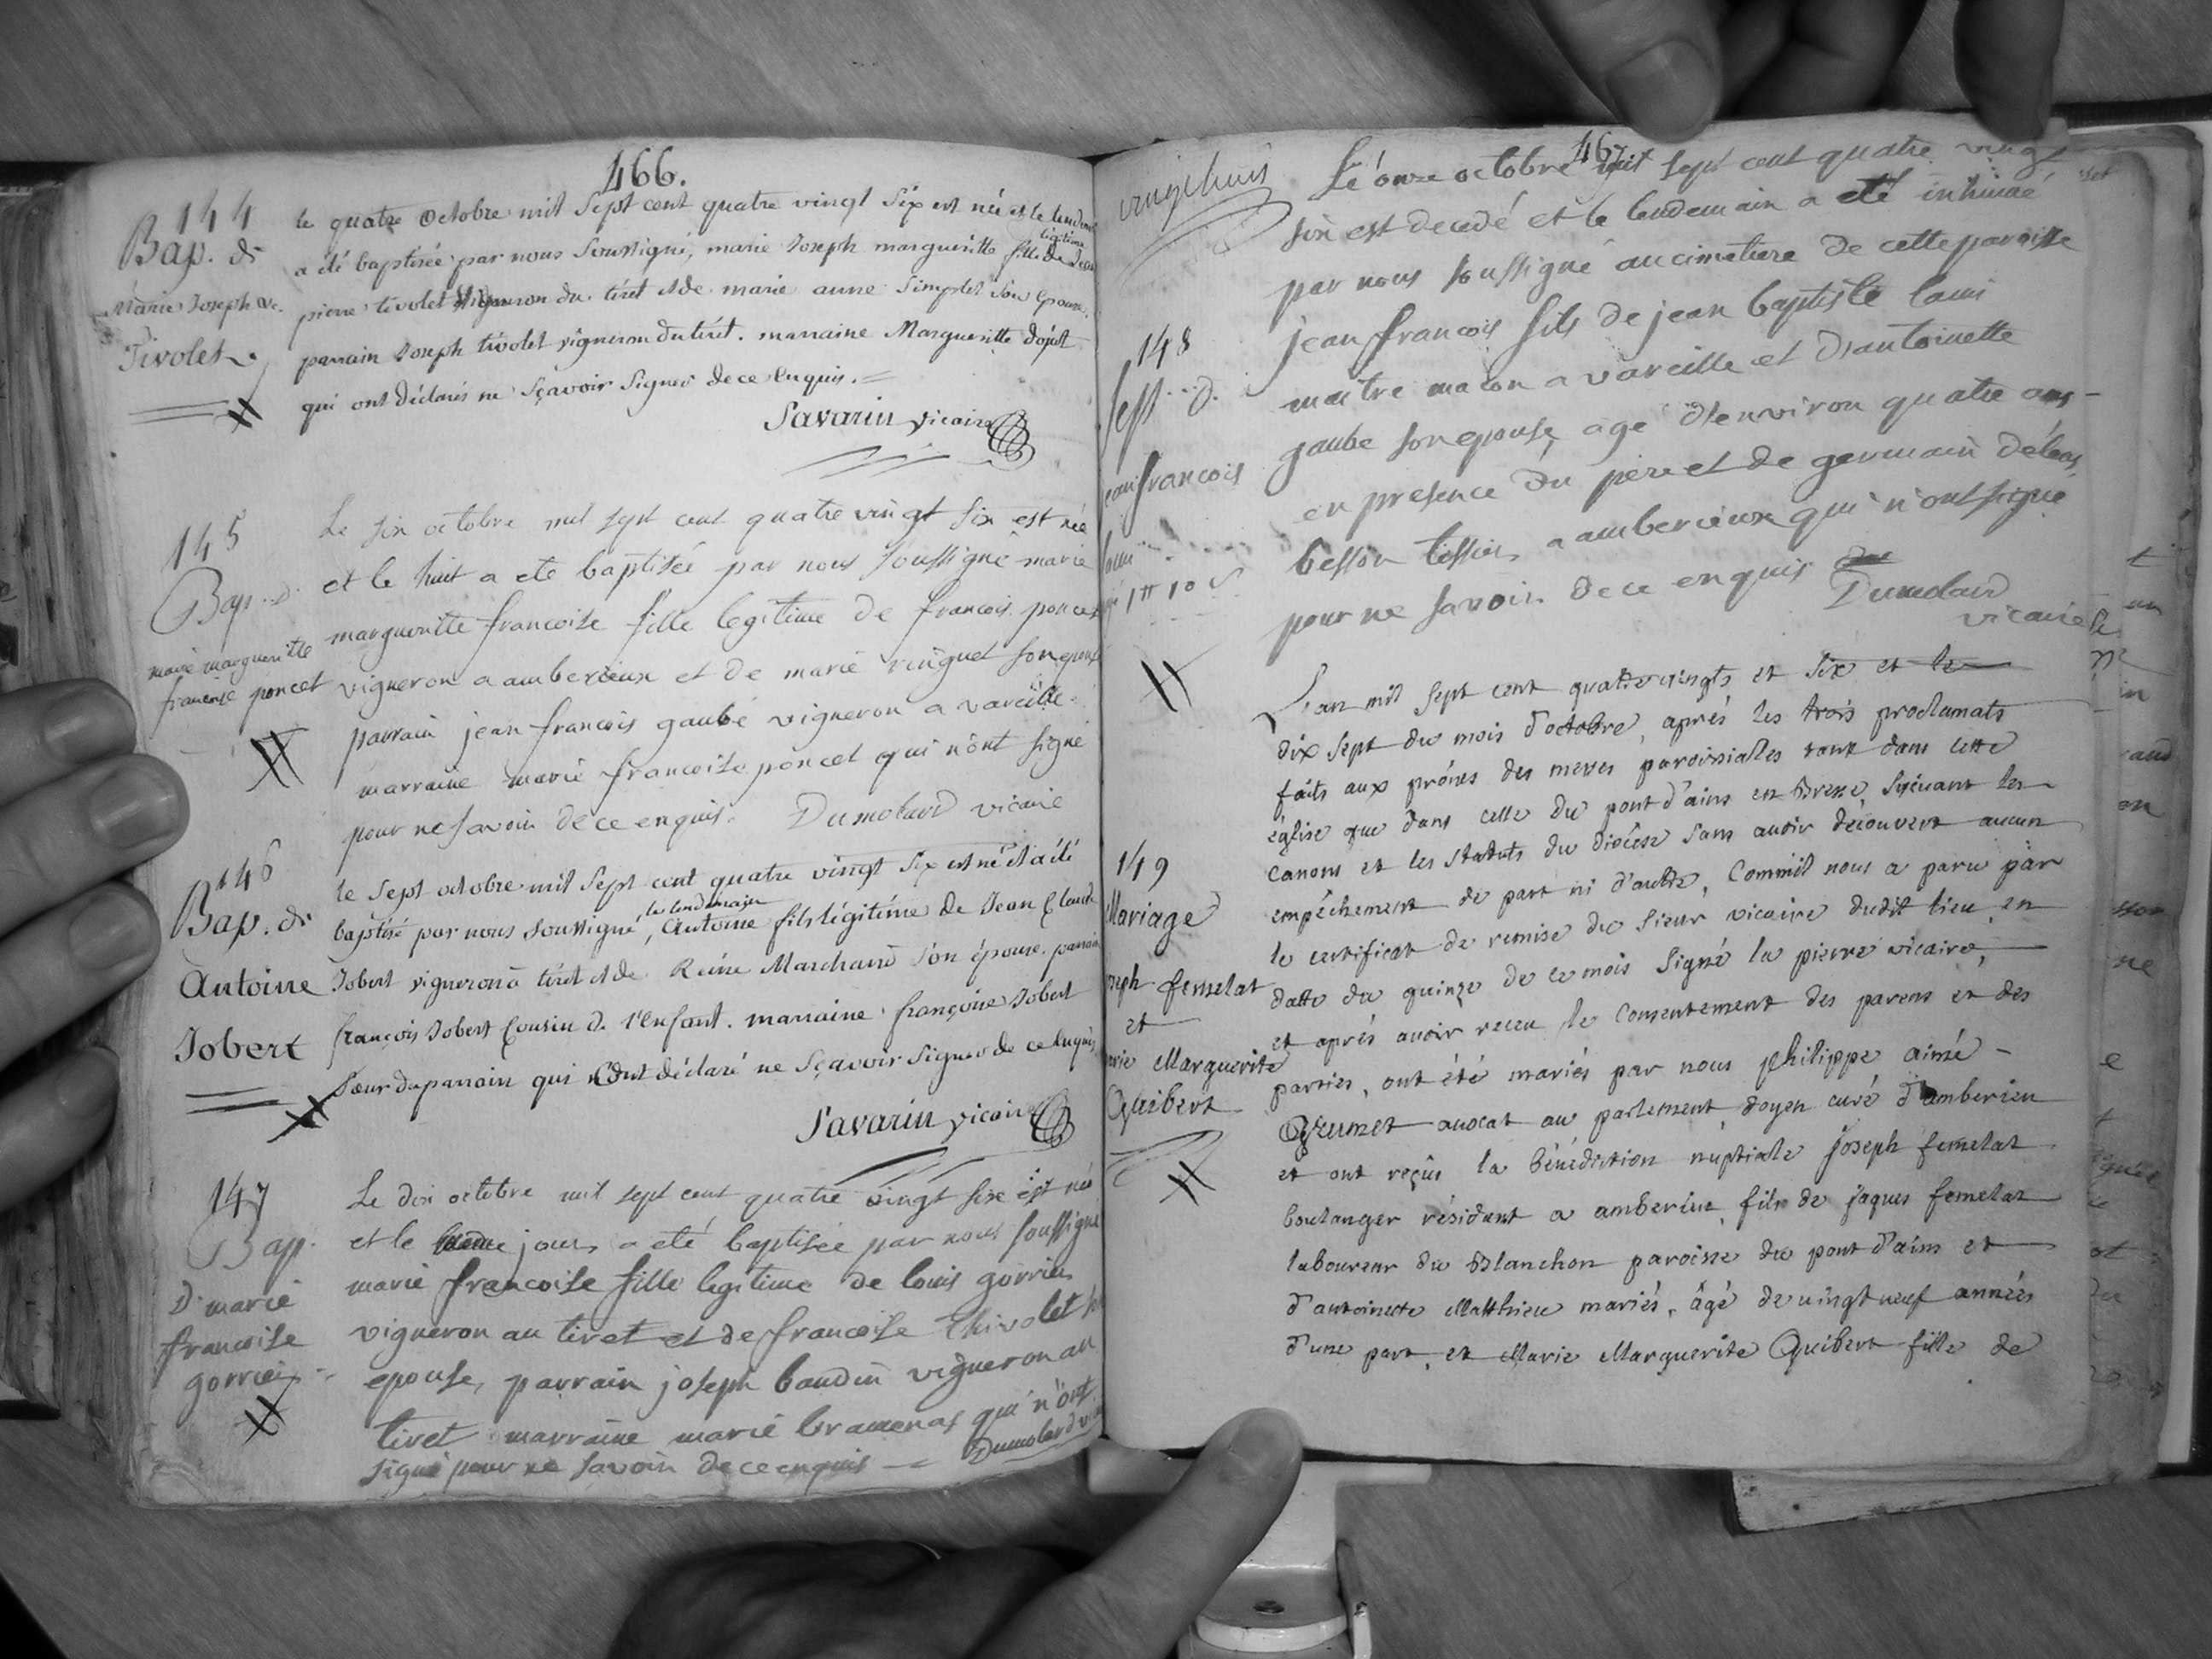 466.
144
Bap. de
Marie Joseph
Tivolet.
le quatre octobre mil Sept cent quatre vingt Six est née et le
a été baptisée par nous Soussigné, marie Joseph margueritte fille légitime de Jean
pierre tivolet vigneron du tiret et de marie anne Simplet Son épouse.
parrain Joseph tivolet vigneron du tiret. marraine Margueritte
qui ont déclarés ne Sçavoir Signer de ce Enquis.
Savarin vicaire
145
Bap. d
marie margueritte
francoise poncet
Le six octobre mil sept cent quatre vingt six est née
et le huit a eté baptisée par nous soussigné marie
margueritte francoise fille legitime de francois poncet
vigneron a amberieux et de marie ringuet son epouse
parrain jean francois gaubé vigneron a vareille
marraine marie francoise poncet qui n'ont signé
pour ne savoir de ce enquis. Dumolard vicaire
146
Bap. de
Antoine
Jobert
le Sept octobre mil Sept cent quatre vingt Six est né et a été
baptisé par nous Soussigné, le lendemain Antoine fils légitime de Jean Claude
Jobert vigneron à tiret et de Reine Marchand Son épouse. parrain
françois Jobert Cousin de l'enfant. marraine françoise Jobert
Sœur du parrain qui ont déclaré ne Sçavoir Signer de ce Enquis
Savarin vicaire
147
Bap.
D. marie
francoise
gorrin
Le dix octobre mil sept cent quatre vingt six est née
et le meme jour a eté baptisée par nous soussigné
marie francoise fille legitime de louis gorrin
vigneron au tiret et de francoise Thivolet
epouse, parrain joseph baudin vigneron au
tiret marraine marie bramenas qui n'ont
signé pour ne savoir de ce enquis Dumolard
467
vingthuis
148
Sep. d.
jean francois
Le onze octobre mil sept cent quatre vingt
six est decedé et le lendemain a eté inhumé
par nous soussigné au cimetiere de cette paroisse
jean francois fils de jean baptiste
maître macon a vareille et d'antoinette
gaube son epouse, agé d'environ quatre ans
en presence du pere et de germain
besson tissier a amberieux qui n'ont signé
pour ne savoir de ce enquis
Dumolard
vicaire
149
Mariage
joseph femelat
et
marie Marguerite
Quibert
L'an mil sept cent quatre vingts et six et le
dix sept du mois d'octobre, aprés les trois proclamats
faits aux prônes des messes paroissiales tant dans cette
église que dans celle du pont d'ains en Bresse, suivant les
canons et les statuts du diocèse sans avoir découvert aucun
empêchement de part ni d'autre, comme il nous a paru par
le certificat de remise du sieur vicaire dudit lieu en
datte du quinze de ce mois signé la pierre vicaire,
et aprés avoir receu le consentement des parens et des
parties, ont été mariés par nous philippe aimé
Grumet avocat au parlement doyen curé d'amberieu
et ont reçus la bénédiction nuptiale joseph femelat
boulanger résidant a amberieu, fils de jaques femelat
laboureur du Blanchon paroisse du pont d'ains et
d'antoinette Matthieu mariés, âgé de vingt neuf années
d'une part, et Marie Marguerite Quibert fille de